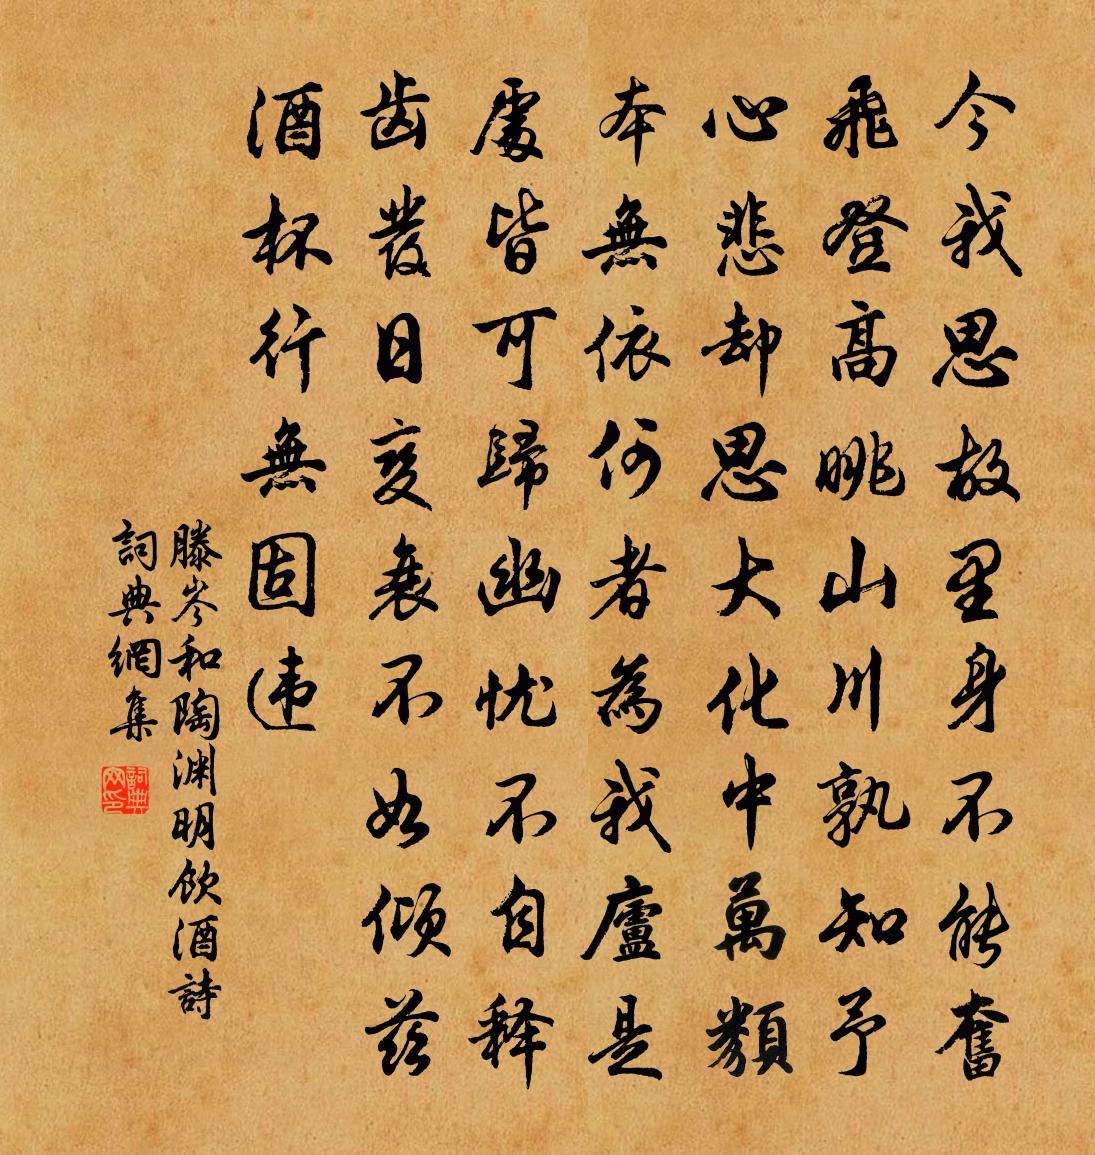 今我思故里身不能奮
飛登高眺山川孰知予
心悲却思大化中萬類
本無依何者為我廬是
處皆可歸幽忧不自释
齿發日变衰不如倾兹
酒杯行無固违
滕岑和陶渊明飲酒詩
詞典網集
詞典网印